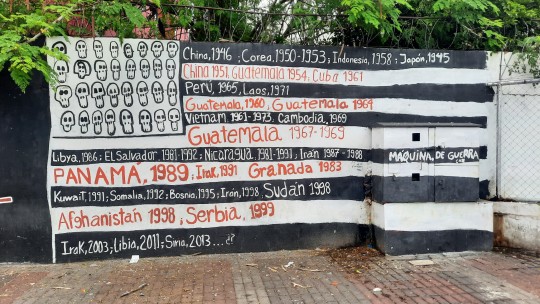 China, 1946 ; Corea, 1950-1953 ; Indonesia, 1958 ; Japón, 1945
China 1951, Guatemala 1954, Cuba 1961
Perú, 1965, Laos, 1971
Guatemala, 1960 ; Guatemala 1964
Vietnam, 1961-1973, Cambodia, 1969
Guatemala 1967-1969
Libya, 1986 ; El Salvador, 1981-1992 ; Nicaragua, 1981-1991 ; Irán 1987-1988
MAQUINA DE GUERRA
PANAMÁ, 1989 ; Irak, 1991 Granada 1983
Kuwait, 1991 ; Somalia, 1992 ; Bosnia, 1995 ; Irán, 1998, Sudán 1998
Afghanistán 1998 ; Serbia, 1999
Irak, 2003 ; Libia, 2011 ; Siria, 2013 ... ¿?